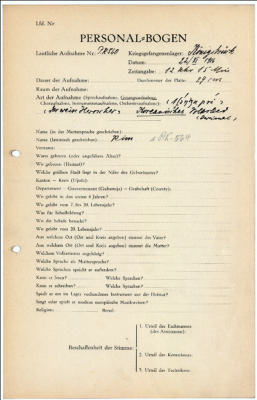 Lfd. Nr
PERSONAL-BOGEN
Lautliche Aufnahme Nr. PK 560 Kriegsgefangenenlager: Königsbrück
Datum: 22/XI 1916
Zeitangabe: 12 Uhr 15 Min
Dauer der Aufnahme: Durchmesser der Platte: 27 cm
Raum der Aufnahme:
Art der Aufnahme (Sprechaufnahme, Gesangsaufnahme,
Choraufnahme, Instrumentenaufnahme, Orchesteraufnahme):
Name (in der Muttersprache geschrieben):
Name (lateinisch geschrieben): Kim
Vorname:
Wann geboren (oder ungefähres Alter)?
Wo geboren (Heimat)?
Welche größere Stadt liegt in der Nähe des Geburtsortes?
Kanton – Kreis (Ujedz):
Department – Gouvernement (Gubernija) – Grafschaft (County):
Wo gelebt in den ersten 6 Jahren?
Wo gelebt vom 7. bis 20. Lebensjahr?
Was für Schulbildung?
Wo die Schule besucht?
Wo gelebt vom 20. Lebensjahr?
Aus welchem Ort (Ort und Kreis angeben) stammt der Vater?
Aus welchem Ort (Ort und Kreis angeben) stammt die Mutter?
Welchem Volksstamm angehörig?
Welche Sprache als Muttersprache?
Welche Sprachen spricht er außerdem?
Kann er lesen? Welche Sprachen?
Kann er schreiben? Welche Sprachen?
Spielt er ein im Lager vorhandenes Instrument aus der Heimat?
Singt oder spielt er modern europäische Musikweisen?
Religion: Beruf:
Beschaffenheit der Stimme:
1. Urteil des Fachmannes
(des Assistenten):
2. Urteil des Kommissars:
3. Urteil des Technikers: